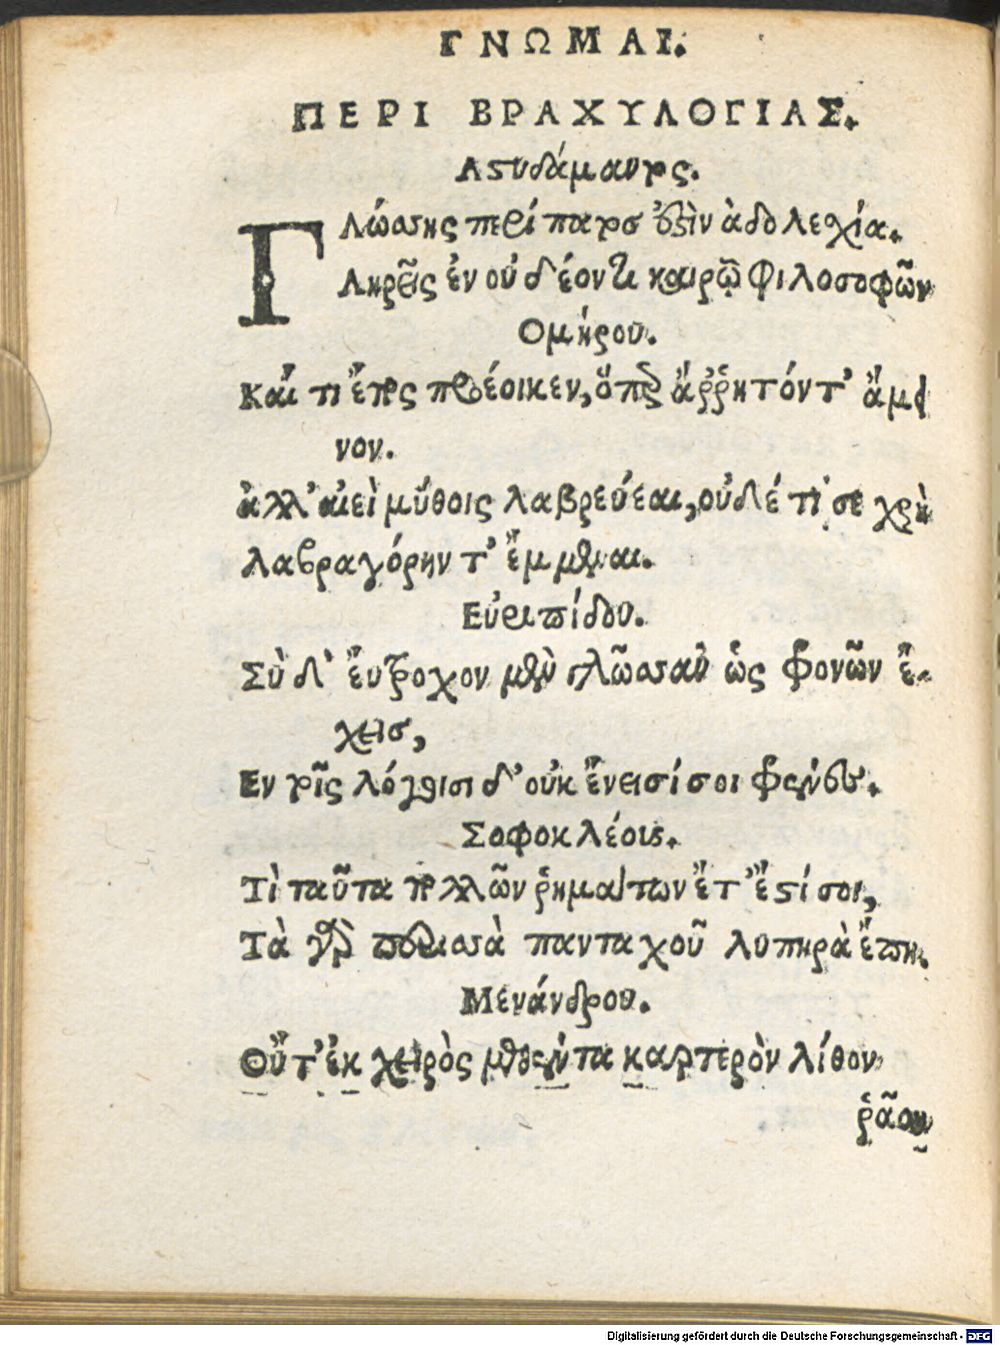 ΓΝΩΜΑΙ.
ΠΕΡΙ ΒΡΑΧΥΛΟΓΙΑΣ.
Αστυδάμαντος.
Γλώσσης περίπατος ἐστὶν ἀδολεχία.
Ληρεῖς ἐν οὐ δέοντι καιρῷ φιλοσοφῶν
Ομήρου.
Καί τι ἔπος προέοικεν, ὅπερ ἄῤῥητόν τ' ἄμει
νον.
ἀλλ' αἰεὶ μύθοις λαβρεύεαι, οὐδέ τί σε χρὴ
λαβραγόρην τ' ἔμμεναι.
Εὐριπίδου.
Σὺ δ' ἔυτροχον μὲν γλῶσσαν ὡς φρονῶν ἔ-
χεις,
Εν τοῖς λόγοισι δ' οὐκ ἔνεισί σοι φρένες.
Σοφοκλέους.
Τὶ ταῦτα πολλῶν ῥημάτων ἔτ' ἔστί σοι,
Τὰ γὰρ περισσὰ πανταχοῦ λυπηρὰ ἔπη.
Μενάνδρου.
Οὔτ' ἐκ χειρὸς μεθέντα καρτερὸν λίθον
ῥᾶον
Digitalisierung gefördert durch die Deutsche Forschungsgemeinschaft - DFG